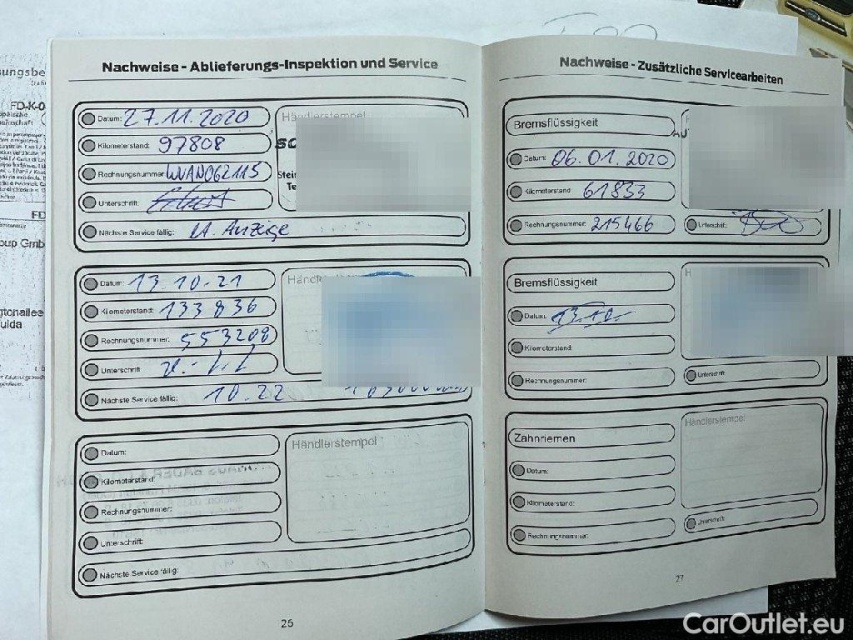 Nachweise - Ablieferungs-Inspektion und Service
Datum: 27.11.2020
Händlerstempel
Kilometerstand: 97808
Rechnungsnummer: WVAN062115
Unterschrift:
Nächste Service fällig: lt. Anzeige
Datum: 13.10.21
Kilometerstand: 133836
Rechnungsnummer: 553208
Unterschrift:
Nächste Service fällig: 10.22
Datum:
Händlerstempel
Kilometerstand:
Rechnungsnummer:
Unterschrift:
Nächste Service fällig:
26
Nachweise - Zusätzliche Servicearbeiten
Bremsflüssigkeit
Datum: 06.01.2020
Kilometerstand: 61833
Rechnungsnummer: 215466
Unterschrift:
Bremsflüssigkeit
Datum: 13.10.
Kilometerstand:
Rechnungsnummer:
Unterschrift:
Zahnriemen
Händlerstempel
Datum:
Kilometerstand:
Rechnungsnummer:
Unterschrift:
27
CarOutlet.eu